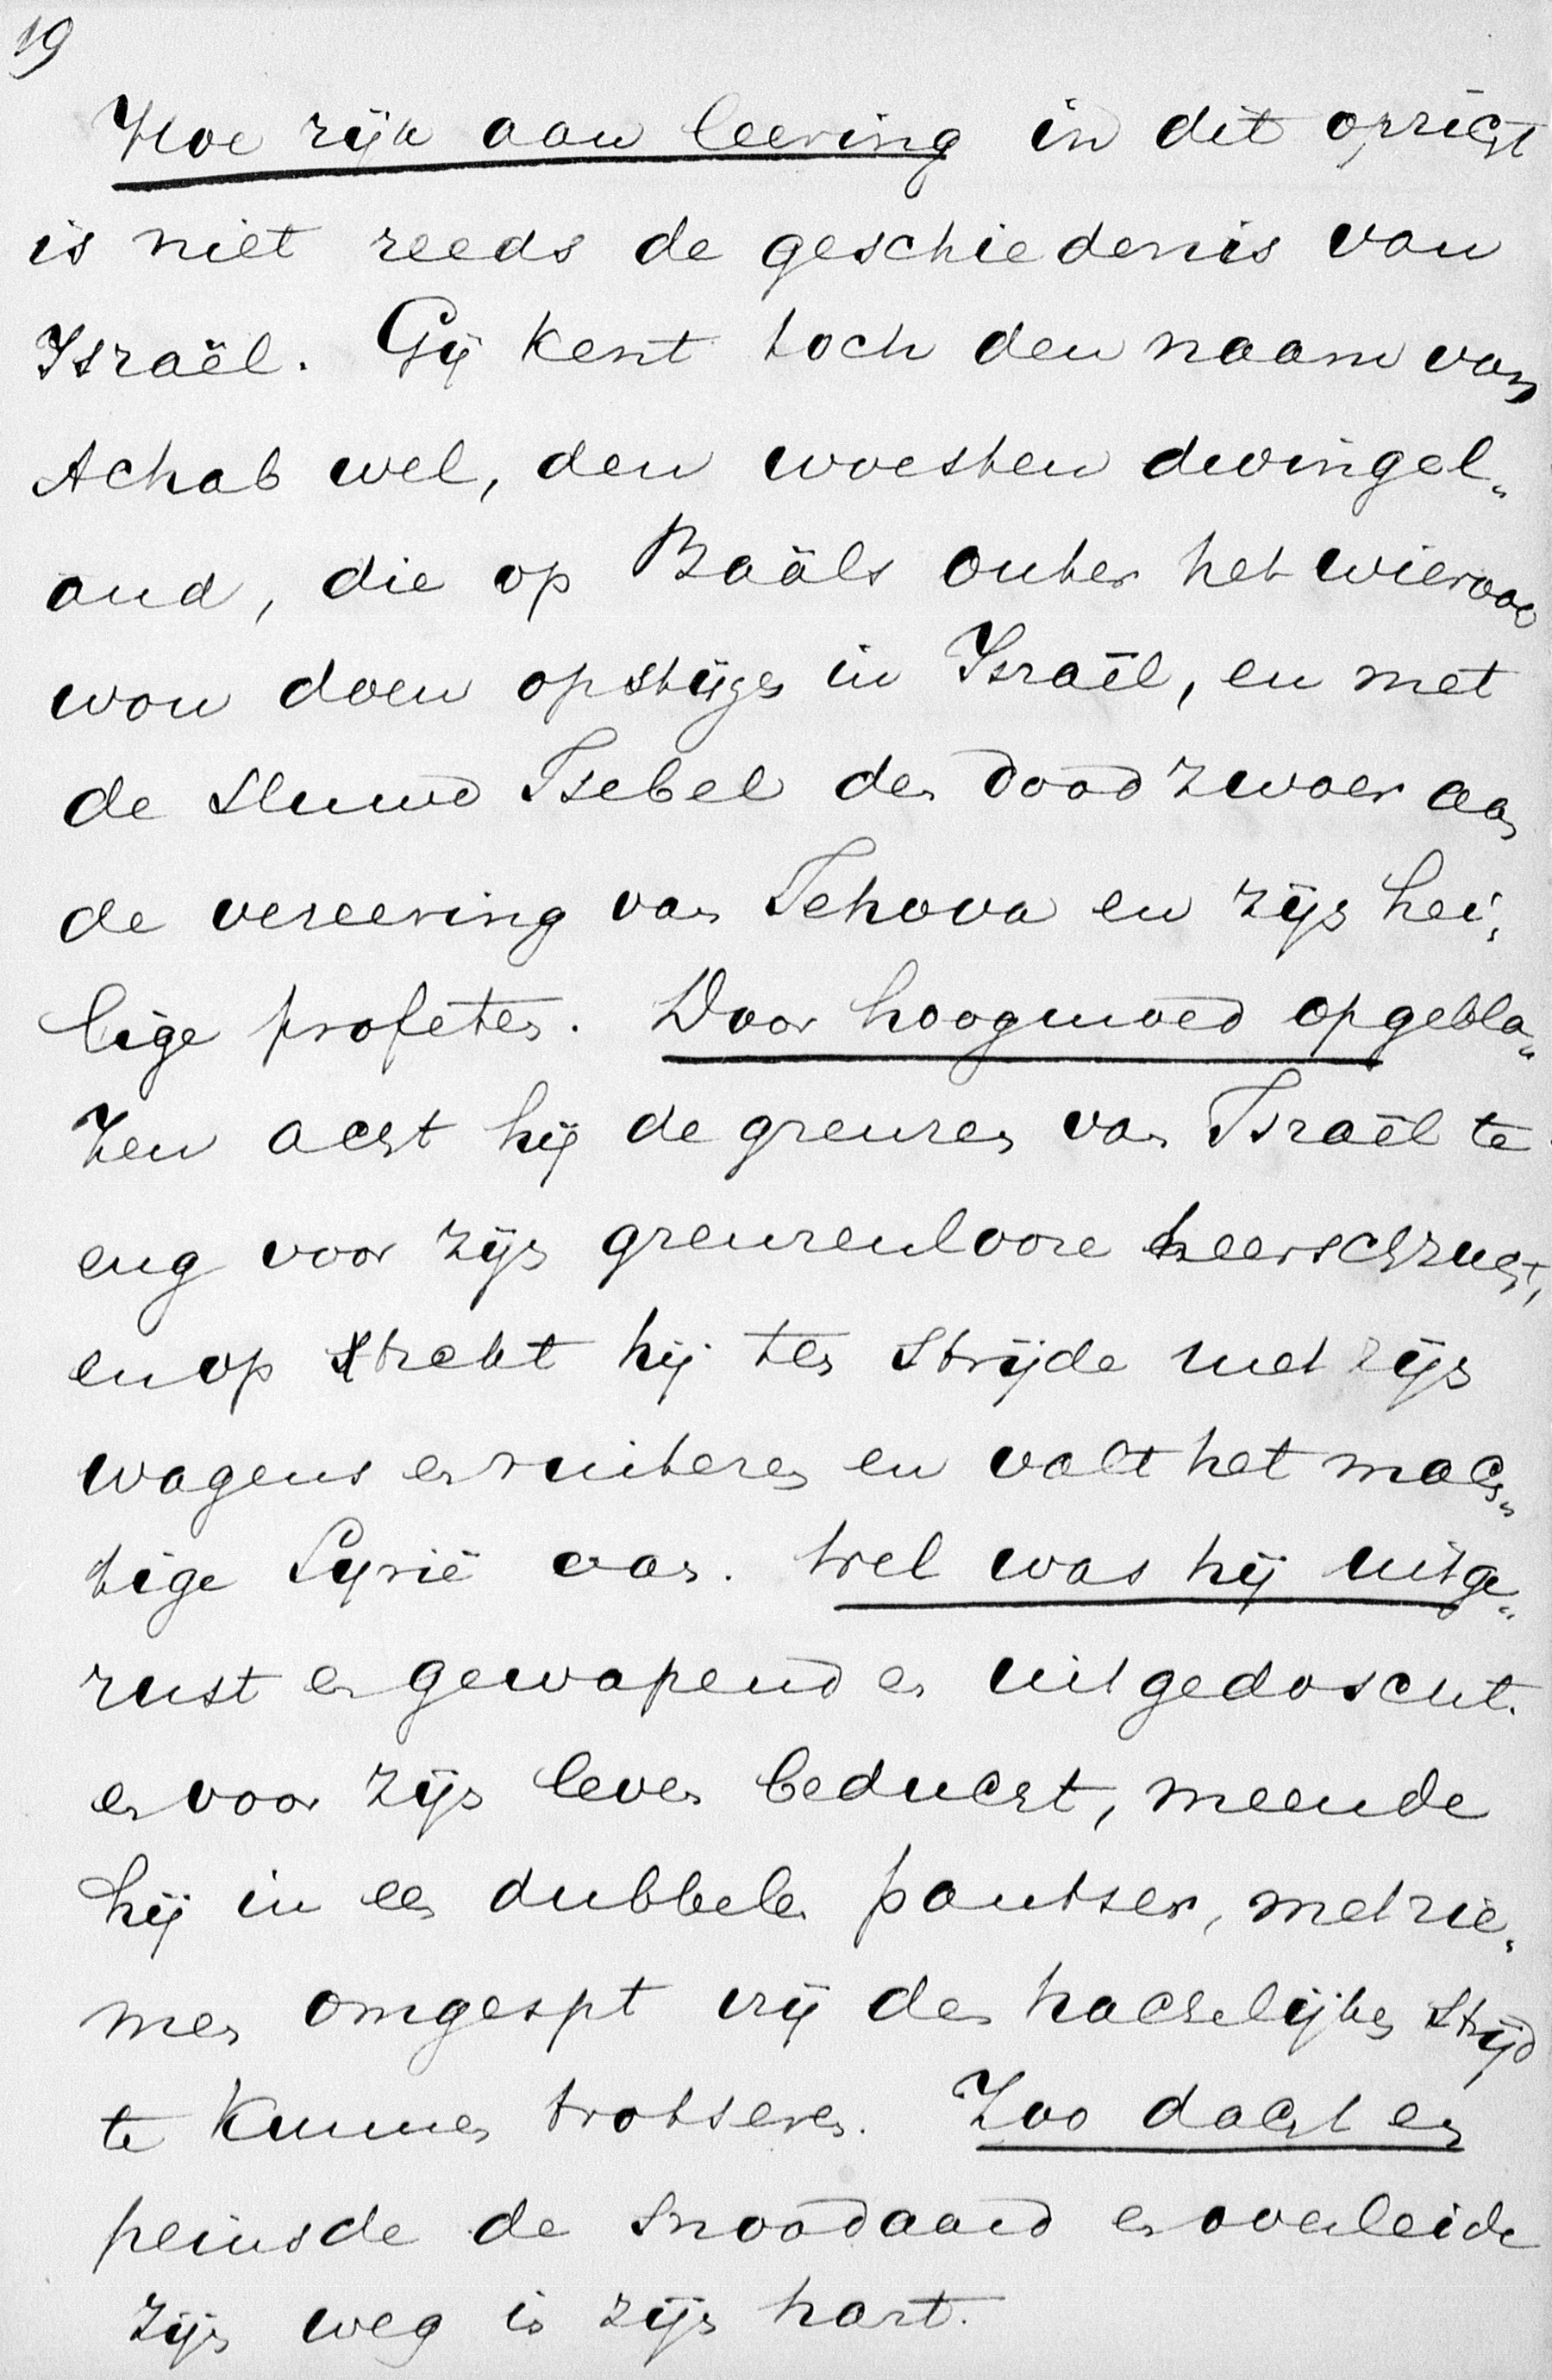 19
Hoe rijk aan leering in dit opzicht
is niet reeds de geschiedenis van
Israël. Gij kent toch den naam van
Achab wel, den woesten dwingel„
and, die op Baäls outer het wierook
wou doen opstijgen in Israël, en met
de sluwe Isebel den dood zwoer aan
de vereering van Jehova en zijn hei„
lige profeten. Door hoogmoed opgebla„
zen acht hij de grenzen van Israël te
eng voor zijn grenzenlooze heerschzucht,
en op trekt hij ten strijde met zijn
wagens en ruiteren en valt het mach„
tige Syrië aan. Wel was hij uitge„
rust en gewapend en uitgedoscht.
en voor zijn leven beducht, meende
hij in een dubbelen pantser, met rie„
men omgespt vrij den hachelijken strijd
te kunnen trotseren. Zoo dacht en
peinsde de snoodaard en overleide
zijn weg in zijn hart.